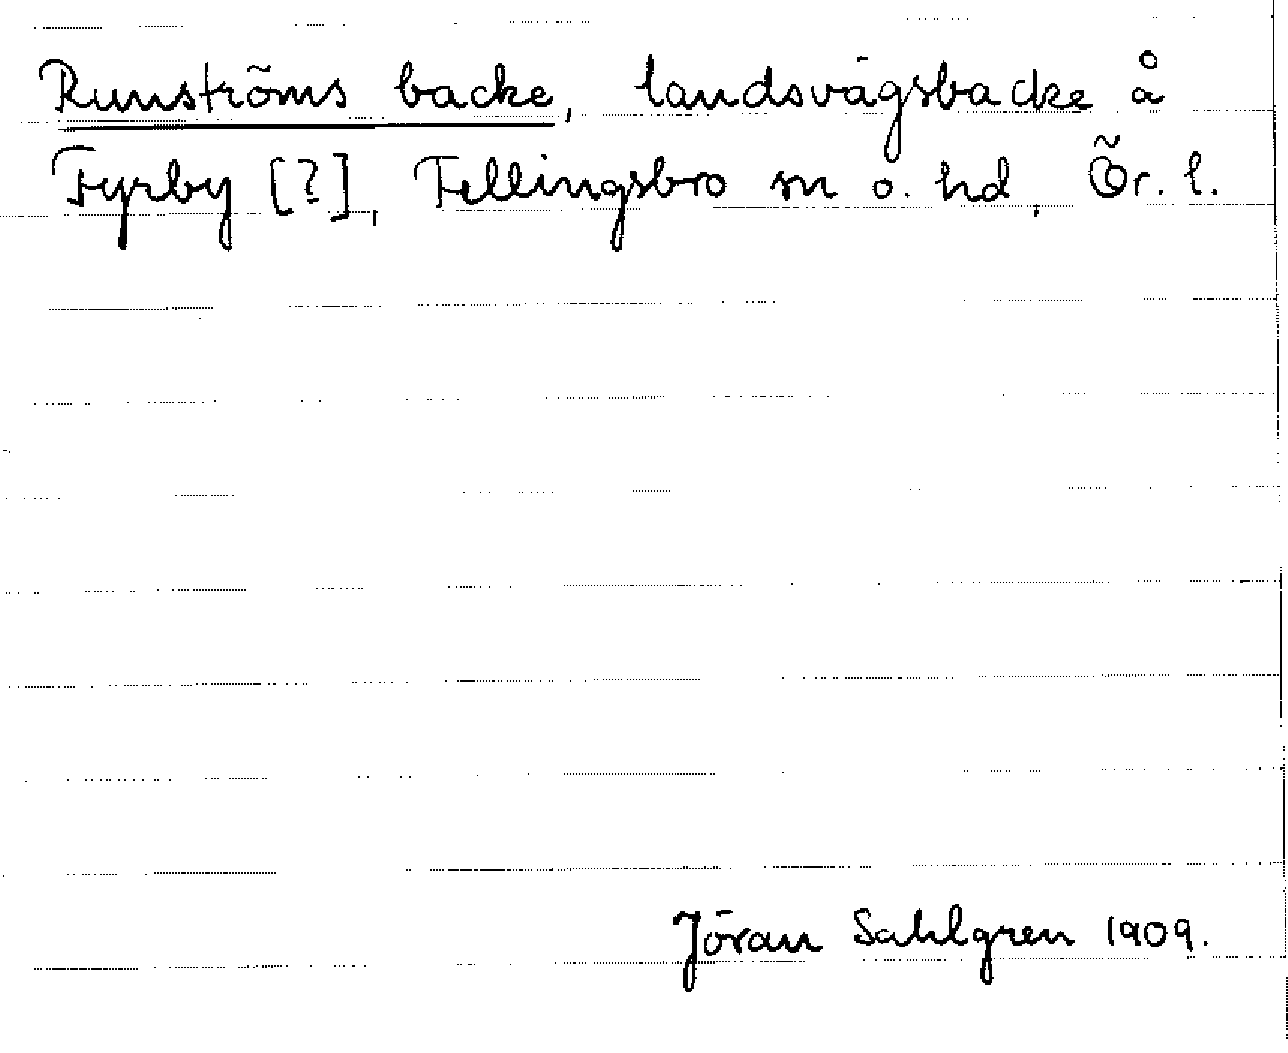 Runströms backe, landsvägsbacke å
Fyrby [?], Fellingsbro sn o. hd, Ör. l.
Jöran Sahlgren 1909.